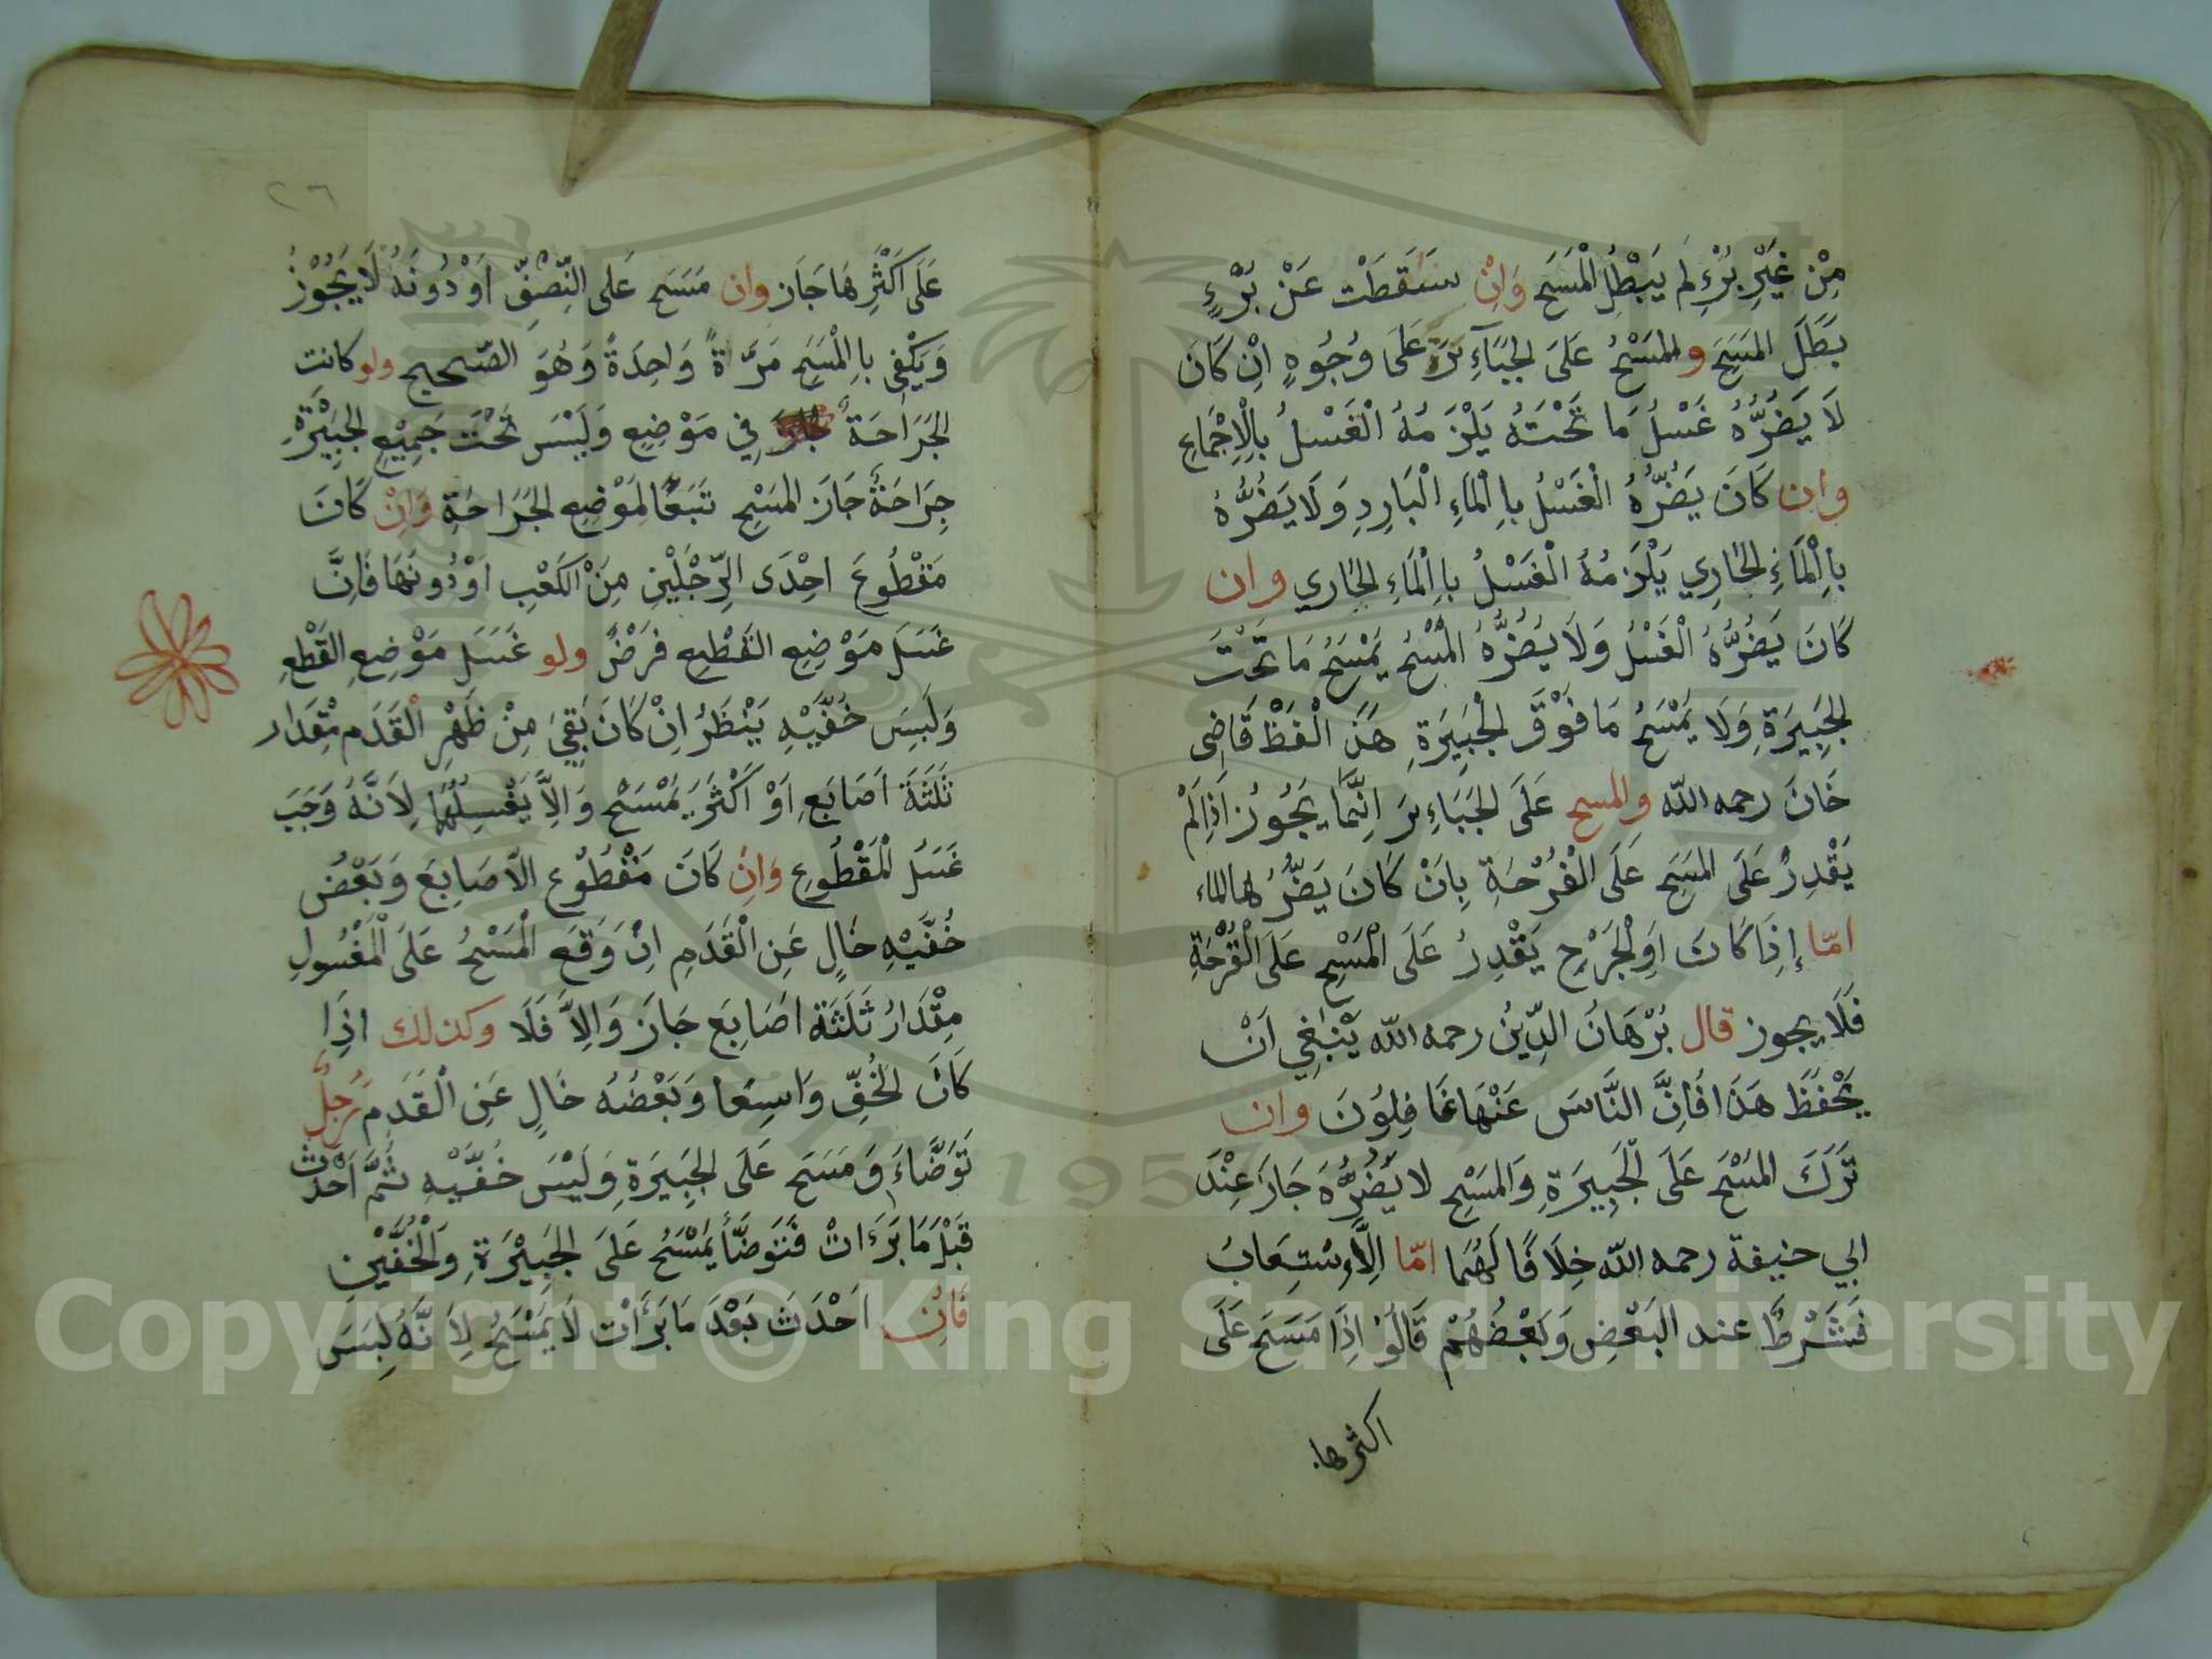 مِنْ غَيْرِ بُرْءٍ لَمْ يَبْطُلِ الْمَسَحَ وَاِنْ سَقَطَتْ عَنْ بُرْءٍ
بَطَلَ المَسَحَ والمَسْحُ عَلَى الجَبَآءِرَ عَلَى وُجُوهٍ اِنْ كَانَ
لَا يَضُرُّهُ غَسْلُ مَا تَحْتَهُ يَلْزَمُهُ الْغَسْلُ بِالْاِجْمَاعِ
وان كَانَ يَضُرُّهُ الْغَسْلُ بِاالْمَاءِ الْبَارِدِ وَلَا يَضُرُّهُ
بِاالْمَاءِ الحَارِي يَلْزَمُهُ الْغَسْلُ بِاالْمَاءِ الحَارِي وان
كَانَ يَضُرُّهُ الْغَسْلُ وَلَا يَضُرُّهُ الْمَسْحُ يَمْسَحُ مَا تَحْتَ
الجَبِيرَةِ وَلَا يَمْسَحُ مَا فَوْقَ الْجَبِيرَةِ هَذَ الْفَظْ قَاضِى
خَانَ رحمه الله والمسح عَلَى الجَبَاءِرَ اِنَّمَا يَجُوزُ اَذَالَمْ
يَقْدِرْ عَلَى المَسَحِ عَلَى الْقُرْحَةِ بِانْ كَانَ يَضُرُّهَا الماء
امّا إِذَا كَانَ اَوِلْجَرْحِ يَقْدِرُ عَلَى الْمَسْحِ عَلَى الْقُرْحَةِ
فَلَا يجوز قال بُرْهَانُ الدِّينُ رحمه الله يَنْبَغِي اَنْ
يَحْفَظَ هَذَا فَاِنَّ النَّاسَ عَنْهَا غَافِلُونَ وان
تَرَكَ المَسْحَ عَلَى الْجَبِيرَةِ وَالمَسْحِ لا يَضُرُّهُ جَازَ عِنْدَ
ابي حنيفة رحمه الله خِلَافًا لَهُمَا امّا الِاُسْتِعَابُ
فَشَرْطٌ عند البَعْضِ وَبَعْضُهُمْ قَالُوْ اِذَا مَسَحَ عَلَى
اكثرها
٢٦
عَلَى اَكْثَرِهَا جَازَ وان مَسَحَ عَلَى النِّصْفِ اَوْ دُونَهُ لَا يَجُوْزُ
وَيَكْفِي بِاالْمَسَحِ مَرَّاةً وَاحِدَةً وَهُوَ الصّحيح ولو كانت
الجَرَاحَةُ فِي مَوْضِعِ وَلَيْسَ تَحْتَ جَمِيْعِ الجَبِيْرَةِ
جِرَاحَةٌ جَازَ المَسْحِ تَبَعًا لِمَوْضِعِ الجَرَاحَةِ وَاِنْ كَانَ
مَقْطُوعَ اِحْدَى الرِّجْلَيْنِ مِنَ الْكَعْبِ اَوْ دُونَهَا فَاِنَّ
غَسَلَ مَوْضِعِ القَطْعِ فَرْضٌ ولو غَسَلَ مَوْضِعِ القَطْعِ
وَلَبِسَ خُفَّيْهِ يَنْظَرُ اِنْ كَانَ بَقِيَ مِنْ ظَهْرِ الْقَدَمِ مِقْدَار
ثَلَثَةَ اَصَابَعِ اَوْ اَكْثَرَ يَمْسَحُ وَاِلَّا يَغْسِلُهَا لِاَنَّهُ وَجَبَ
غَسَلُ الْمَقْطُوعِ وَاِنْ كَانَ مَقْطُوْع الْاَصَابِعَ وَبَعْضُ
خُفَّيْهِ خَالٍ عَنِ الْقَدَمِ اِنْ وَقَعَ الْمَسْحُ عَلَى الْمَغْسُولِ
مِقْدَارُ ثَلَثَةِ اَصَابِعَ جَازَ وَاِلَّا فَلَا وكذلك اِذَا
كَانَ الْخُفِّ وَاسِعًا وَبَعْضُهُ خَالٍ عَنِ الْقَدَمِ رَجُلٌ
تَوَضَّاءَ وَمَسَحَ عَلَى الجَبِيرَةِ وَلَبْسَ خُفَّيْهِ ثُمَّ اَحْدَثَ
قَبْلَ مَا بَرَءَاتْ فَتَوَضَّأَ يَمْسَحُ عَلَى الجَبِيْرَةِ وَالْخُفَّيْنِ
فَاِنْ اَحْدَثَ بَعْدَ مَا بَرَأَتْ لَا يَمْسَحُ لِاَنَّهُ لِبَسَ
Copyright © King Saud University
1957